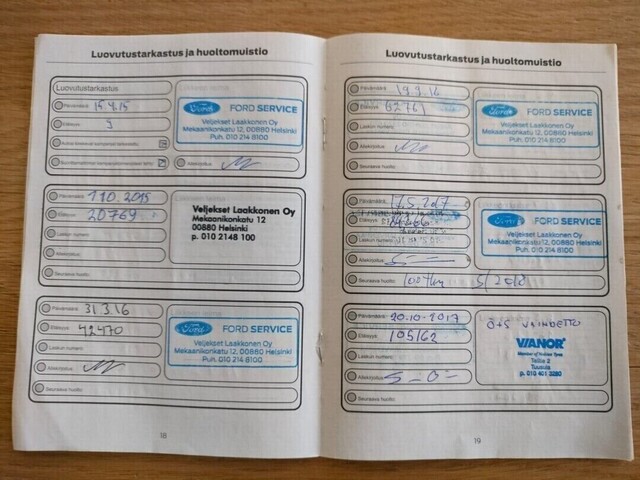 Luovutustarkastus ja huoltomuistio
Luovutustarkastus
Päivämäärä 15.9.15
Etäisyys 9
Allekirjoitus
Ford FORD SERVICE
Veljekset Laakkonen Oy
Mekaanikonkatu 12, 00880 Helsinki
Puh. 010 214 8100
Päivämäärä 1.10.2015
Etäisyys 20769
Laskun numero
Allekirjoitus
Seuraava huolto
Veljekset Laakkonen Oy
Mekaanikonkatu 12
00880 Helsinki
p. 010 2148 100
Päivämäärä 31.3.16
Etäisyys 42470
Laskun numero
Allekirjoitus
Seuraava huolto
Ford FORD SERVICE
Veljekset Laakkonen Oy
Mekaanikonkatu 12, 00880 Helsinki
Puh. 010 214 8100
18
Luovutustarkastus ja huoltomuistio
Päivämäärä 19.9.16
Etäisyys 62761
Laskun numero
Allekirjoitus
Seuraava huolto
Ford FORD SERVICE
Veljekset Laakkonen Oy
Mekaanikonkatu 12, 00880 Helsinki
Puh. 010 214 8100
Päivämäärä 17.5.2017
Etäisyys
Laskun numero
Allekirjoitus
Seuraava huolto 100tkm 5/2018
Ford FORD SERVICE
Veljekset Laakkonen Oy
Mekaanikonkatu 12, 00880 Helsinki
Puh. 010 214 8100
Päivämäärä 20.10-2017
Etäisyys 105162
Laskun numero
Allekirjoitus
Seuraava huolto
Ö+S VAIHDETTO
VIANOR
Member of Nokian Tyres
Tuusula
p. 010 401 3280
19